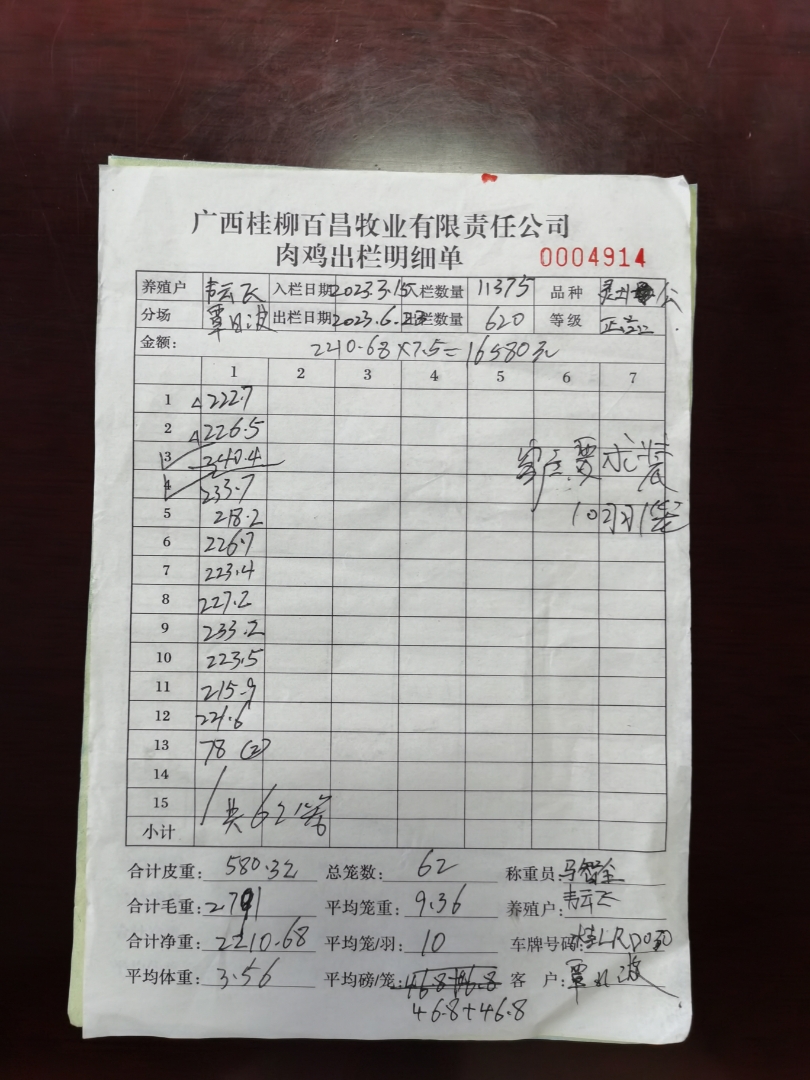 广西桂柳百昌牧业有限责任公司
肉鸡出栏明细单 0004914
养殖户 韦云飞 入栏日期 2023.3.15 入栏数量 11375 品种 公
分场 覃日波 出栏日期 2023.6.23 出栏数量 620 等级 正品
金额: 2210.68×7.5=16580元
1 2 3 4 5 6 7
1 222.7
2 226.5
3 240.4
4 233.7
5 218.2
6 226.7
7 223.4
8 227.2
9 233.2
10 223.5
11 215.9
12 221.6
13 78 (2)
14
15 共62笼
小计
合计皮重: 580.32 总笼数: 62 称重员: 马智全
合计毛重: 2791 平均笼重: 9.36 养殖户: 韦云飞
合计净重: 2210.68 平均笼/羽: 10 车牌号码: 桂LR
平均体重: 3.56 平均磅/笼: 46.8+46.8 客 户: 覃日波
46.8+46.8